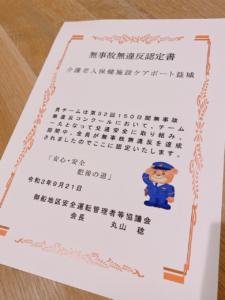 無事故無違反認定書
介護老人保健施設ケアポート益城
貴チームは第32回150日間無事故
無違反コンクールにおいて、チーム
一丸となって交通安全に取り組み、
期間中、全員が無事故無違反を達成
されましたのでここに認定いたします。
「安心・安全
肥後の道」
令和2年9月21日
御船地区安全運転管理者等協議会
会長 丸山 稔